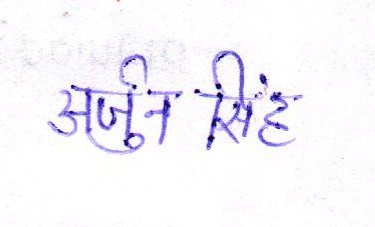 अर्जुन सिंह